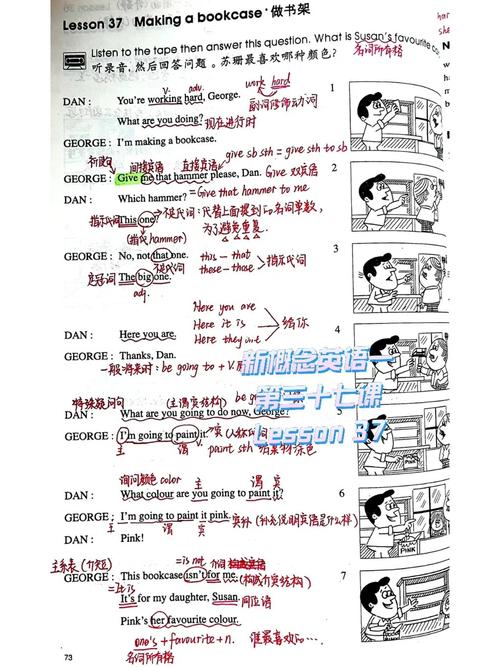 Lesson 37 Making a bookcase · 做书架
Listen to the tape then answer this question. What is Susan's favourite co
听录音，然后回答问题。苏珊最喜欢哪种颜色？ 名词所有格
v. adv. work hard
DAN : You're working hard, George. 副词修饰动词 1
What are you doing? 现在进行时
GEORGE : I'm making a bookcase.
祈使句 间接宾语 直接宾语 give sb sth = give sth to sb
GEORGE : Give me that hammer please, Dan. Give 双宾语 2
DAN : Which hammer? = Give that hammer to me
指示代词 This one? 不定代词: 代替上面提到的名词单数,
(指代 hammer) 为了避免重复.
GEORGE : No, not that one. this - that 3
不定代词 these - those 指示代词
定冠词 The big one.
adj.
Here you are
Here it is 给你
Here they are
DAN : Here you are. 4
GEORGE : Thanks, Dan.
一般将来时: be going to + V.
新概念英语一
第三十七课
Lesson 37
特殊疑问句 (主谓宾结构) be go
DAN : What are you going to do now, George? 5
GEORGE : I'm going to paint it. 宾 (人称代词)
主 谓 paint sth 给某物涂色
询问颜色 color 主 谓 宾
DAN : What colour are you going to paint it? 6
GEORGE : I'm going to paint it pink. 宾补 (补充说明宾语是什么样)
主 谓 宾
DAN : Pink!
主系表 (介短) = is not 介词
GEORGE : This bookcase isn't for me. (构成介宾结构) 7
= It is
It's for my daughter, Susan. 同位语
Pink's her favourite colour.
one's + favourite + n. 谁最喜欢的…
名词所有格
73